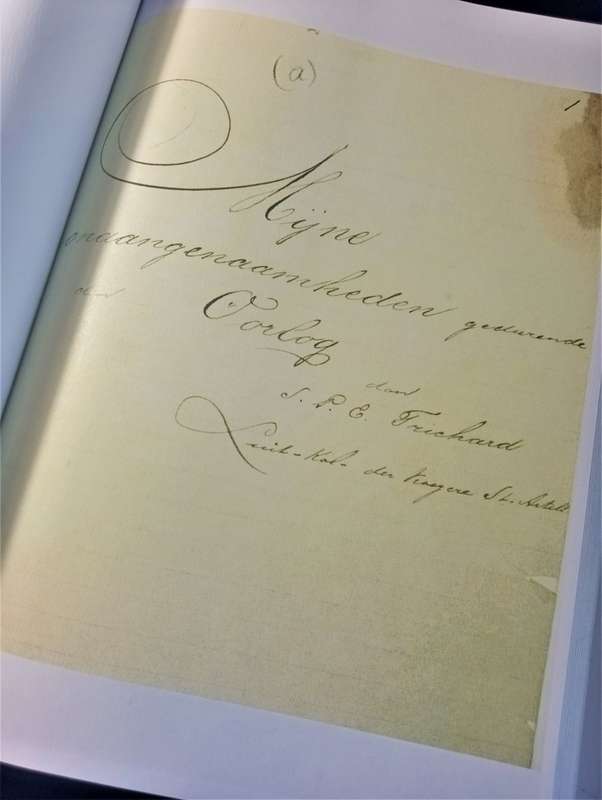 (a)
1
Mijne
onaangenaamheden gedurende
den
Oorlog
door
S. P. E. Trichard
Luit-Kol- der Vroegere St. Artill